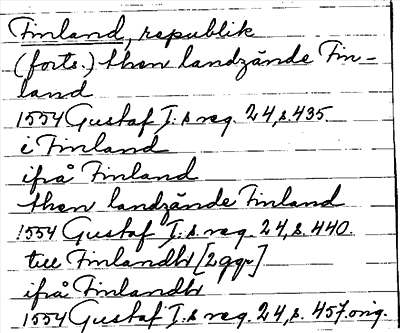 Finland, republik
(forts.) then landzände Fin-
land
1554 Gustaf I:s reg. 24, s. 435.
i Finland
ifrå Finland
then landzände Finland
1554 Gustaf I:s reg. 24, s. 440.
till Finlandh [2 ggr]
ifrå Finlandh
1554 Gustaf I:s reg. 24, s. 457. orig.